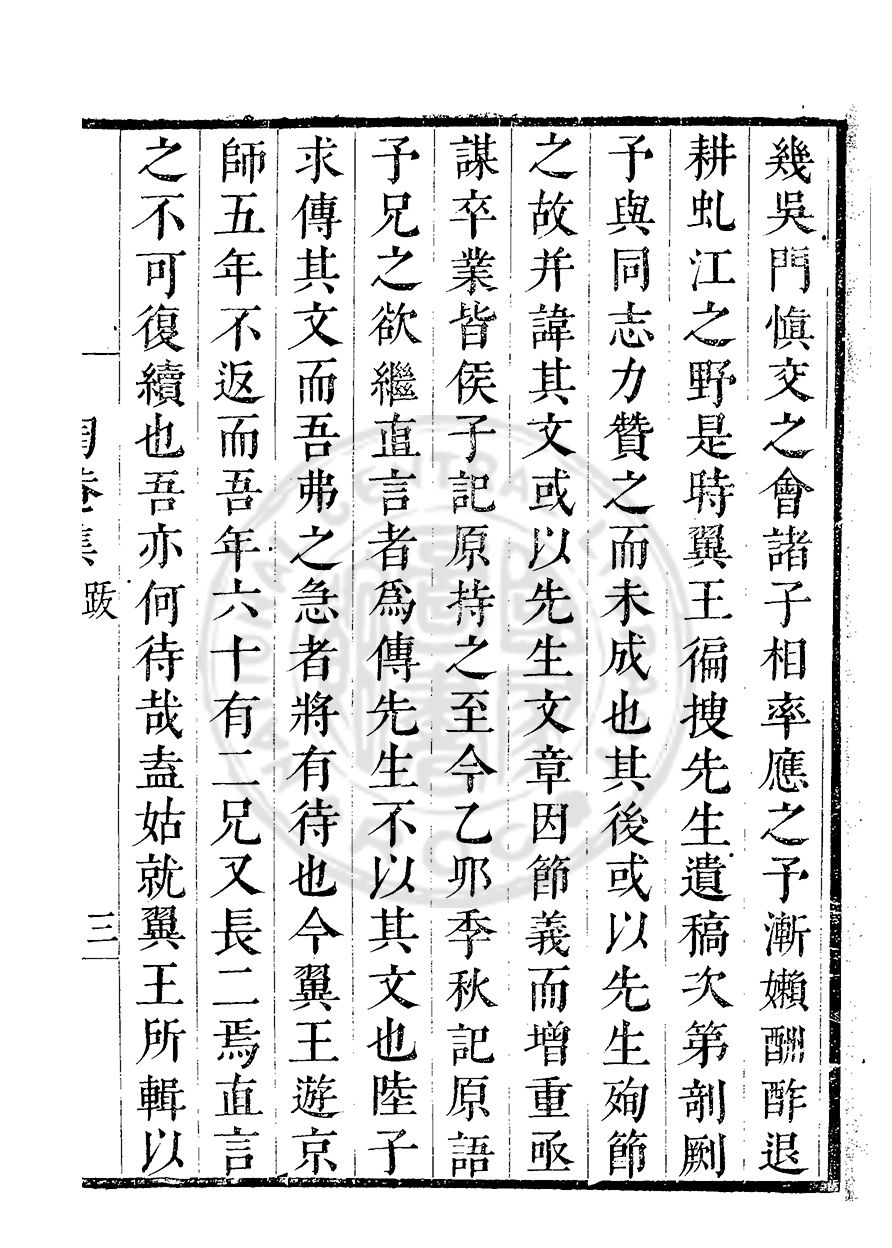 幾吳門愼交之會諸子相率應之予漸嬾酬酢退
耕虬江之野是時翼王徧搜先生遺稿次第剞劂
予與同志力贊之而未成也其後或以先生殉節
之故并諱其文或以先生文章因節義而增重亟
謀卒業皆侯子記原持之至今乙夘季秋記原語
予兄之欲繼直言者爲傳先生不以其文也陸子
求傳其文而吾弗之急者將有待也今翼王遊京
師五年不返而吾年六十有二兄又長二焉直言
之不可復續也吾亦何待哉盍姑就翼王所輯以
陶菴集 跋 三